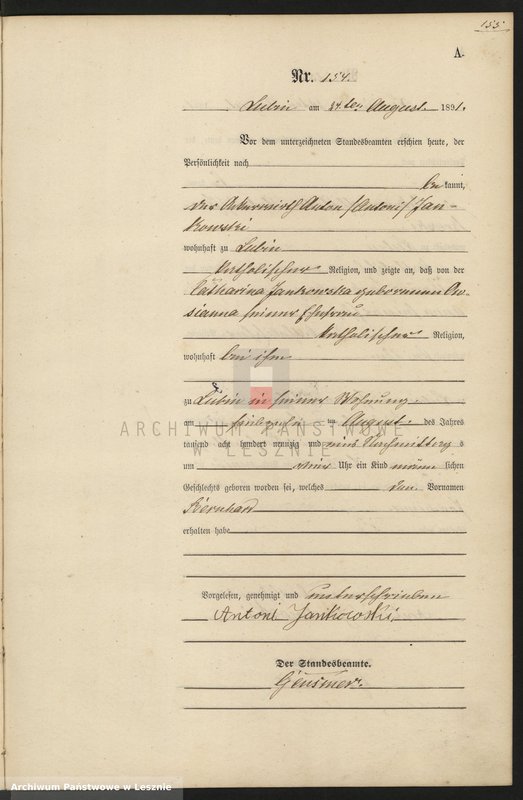 155
A.
Nr. 154.
Lubin am 24ten August 1891.
Vor dem unterzeichneten Standesbeamten erschien heute, der
Persönlichkeit nach
bekannt,
der Ackerwirth Anton /Antoni/ Jan-
kowski
wohnhaft zu Lubin
katholischer Religion, und zeigte an, daß von der
Catharina Jankowska geborenen
sianna seiner Ehefrau
katholischer Religion,
wohnhaft bei ihm
zu Lubin in seiner Wohnung
am im August des Jahres
tausend acht hundert neunzig und eins Nachmittags
um Uhr ein Kind männlichen
Geschlechts geboren worden sei, welches den Vornamen
Bernhard
erhalten habe
Vorgelesen, genehmigt und unterschrieben
Antoni Jankowski
Der Standesbeamte.
ARCHIWUM PAŃSTWOWE
W LESZNIE
Archiwum Państwowe w Lesznie